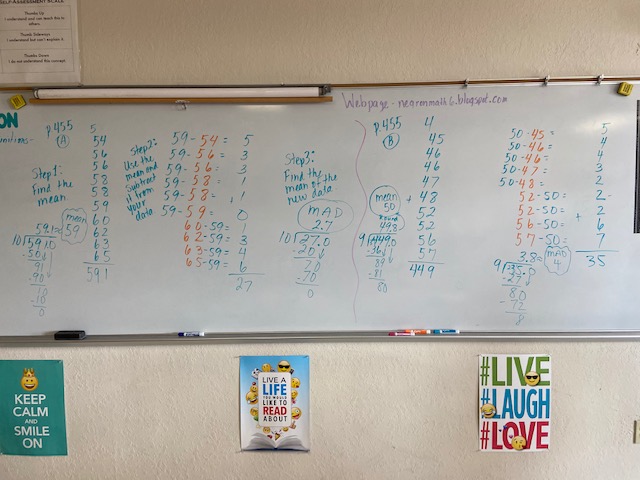 ELF-ASSESSMENT SCALE
Thumbs Up
I understand and can teach this to
others.
Thumb Sideways
I understand but can't explain it.
Thumbs Down
I do not understand this concept.
ON
nctions-
p.455
A
Step 1:
Find the
mean
5
54
56
56
58
58
59
60
62
63
65
591
mean
59
59.1
10 591.0
-50
91
-90
10
-10
0
Step 2:
Use the
mean and
Subtract
it from
your
data
59-54= 5
59-56= 3
59-56= 3
59-58= 1
59-58= 1
59-59= 0
60-59= 1
62-59= 3
63-59= 4
65-59= 6
27
Step 3:
Find the
mean of the
new data
MAD
2.7
10 27.0
-20
70
-70
0
Webpage - negronmath6.blogspot.com
p.455
B
4
45
46
46
47
+ 48
52
52
56
57
449
mean
50
round
49.8
9 449.0
-36
89
-81
80
50-45= 5
50-46= 4
50-46= 4
50-47= 3
50-48= 2
52-50= 2
52-50= + 2
56-50= 6
57-50= 7
35
3.8
MAD
4
9 35.0
-27
80
-72
8
KEEP
CALM
AND
SMILE
ON
LIVE A
LIFE
YOU WOULD
LIKE TO
READ
ABOUT
#LIVE
#LAUGH
#LOVE